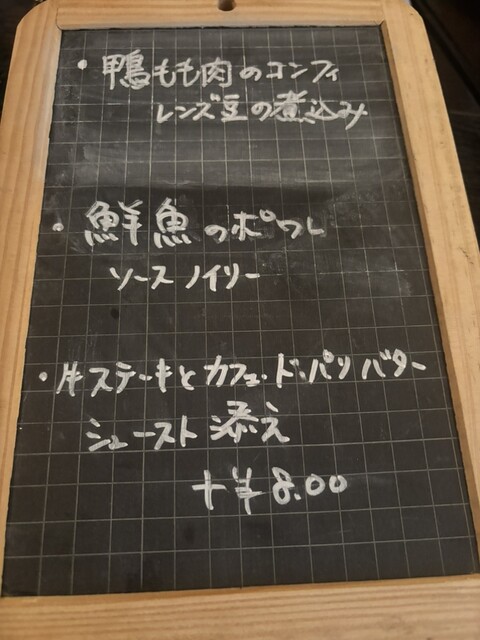 ・鴨もも肉のコンフィ
レンズ豆の煮込み
・鮮魚のポワレ
ソースノイリー
・牛ステーキとカフェ・ド・パリバター
シュースト添え
+¥8.00